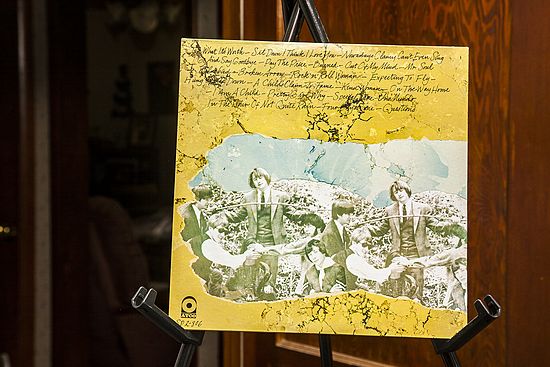 What It's Worth — Sit Down I Think I Love You — Nowadays Clancy Can't Even Sing
And Say Goodbye — Pay The Price — Burned — Out Of My Mind — Mr. Soul
Broken Arrow — Rock 'n' Roll Woman — Expecting To Fly —
A Child's Claim To Fame — Kind Woman — On The Way Home
I Am A Child — Pretty Girl Why — Special Care — Uno Mundo
In The Hour Of Not Quite Rain — Four Days Gone — Questions
ATCO